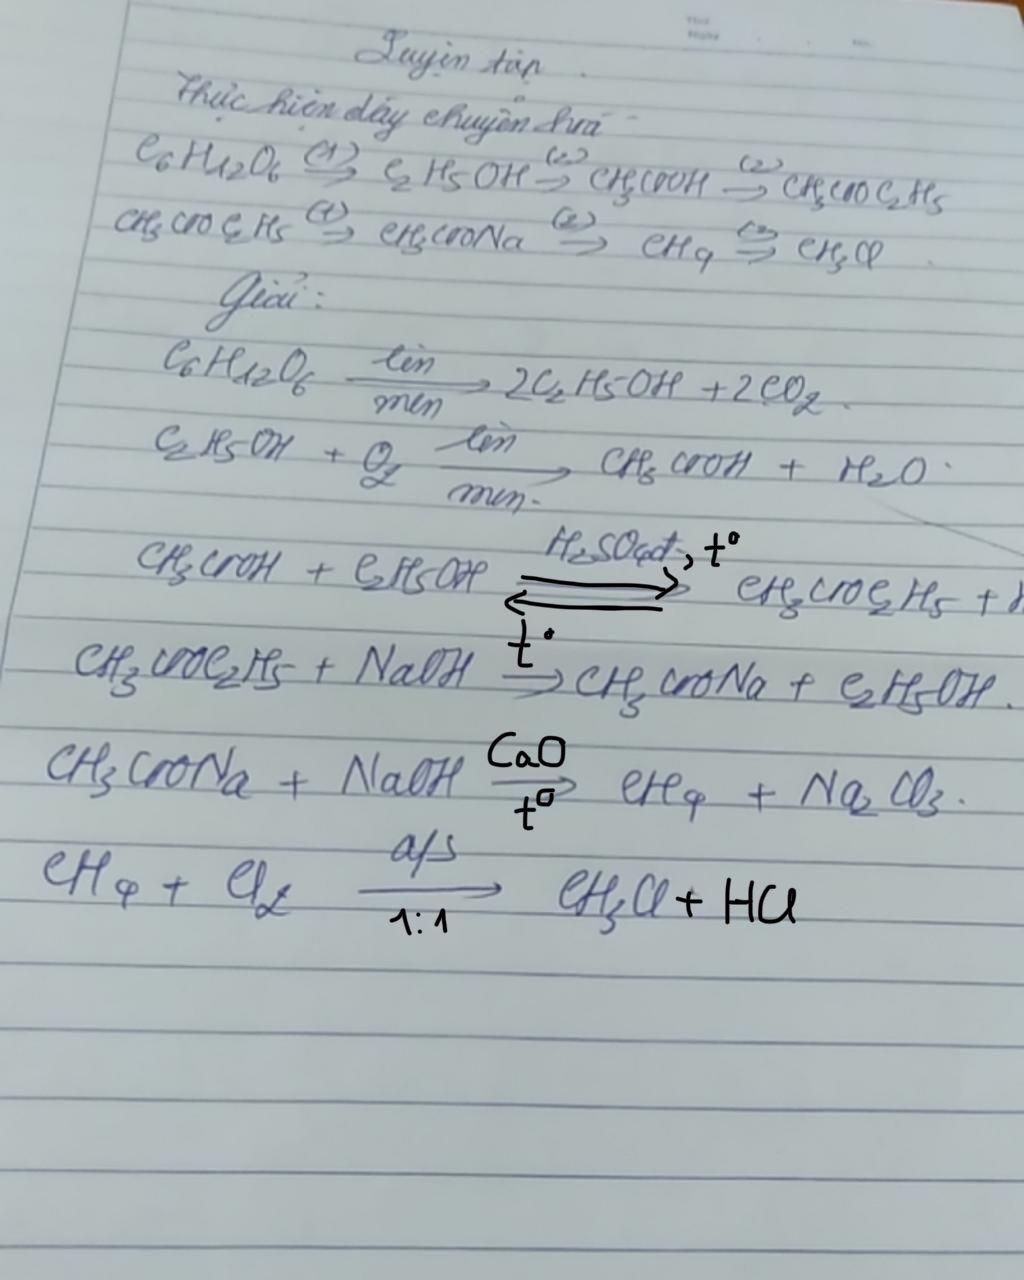 Luyện tập
Thực hiện dãy chuyển hoá
C6H12O6 (1)→ C2H5OH (2)→ CH3COOH (2)→ CH3COOC2H5
CH3COOC2H5 (1)→ CH3COONa (2)→ CH4 (3)→ CH3Cl
Giải:
C6H12O6 lên men→ 2C2H5OH + 2CO2.
C2H5OH + O2 lên men→ CH3COOH + H2O.
CH3COOH + C2H5OH ⇌ H2SO4đ, t° CH3COOC2H5 +
CH3COOC2H5 + NaOH t°→ CH3COONa + C2H5OH.
CH3COONa + NaOH CaO t°→ CH4 + Na2CO3.
CH4 + Cl2 a/s 1:1→ CH3Cl + HCl